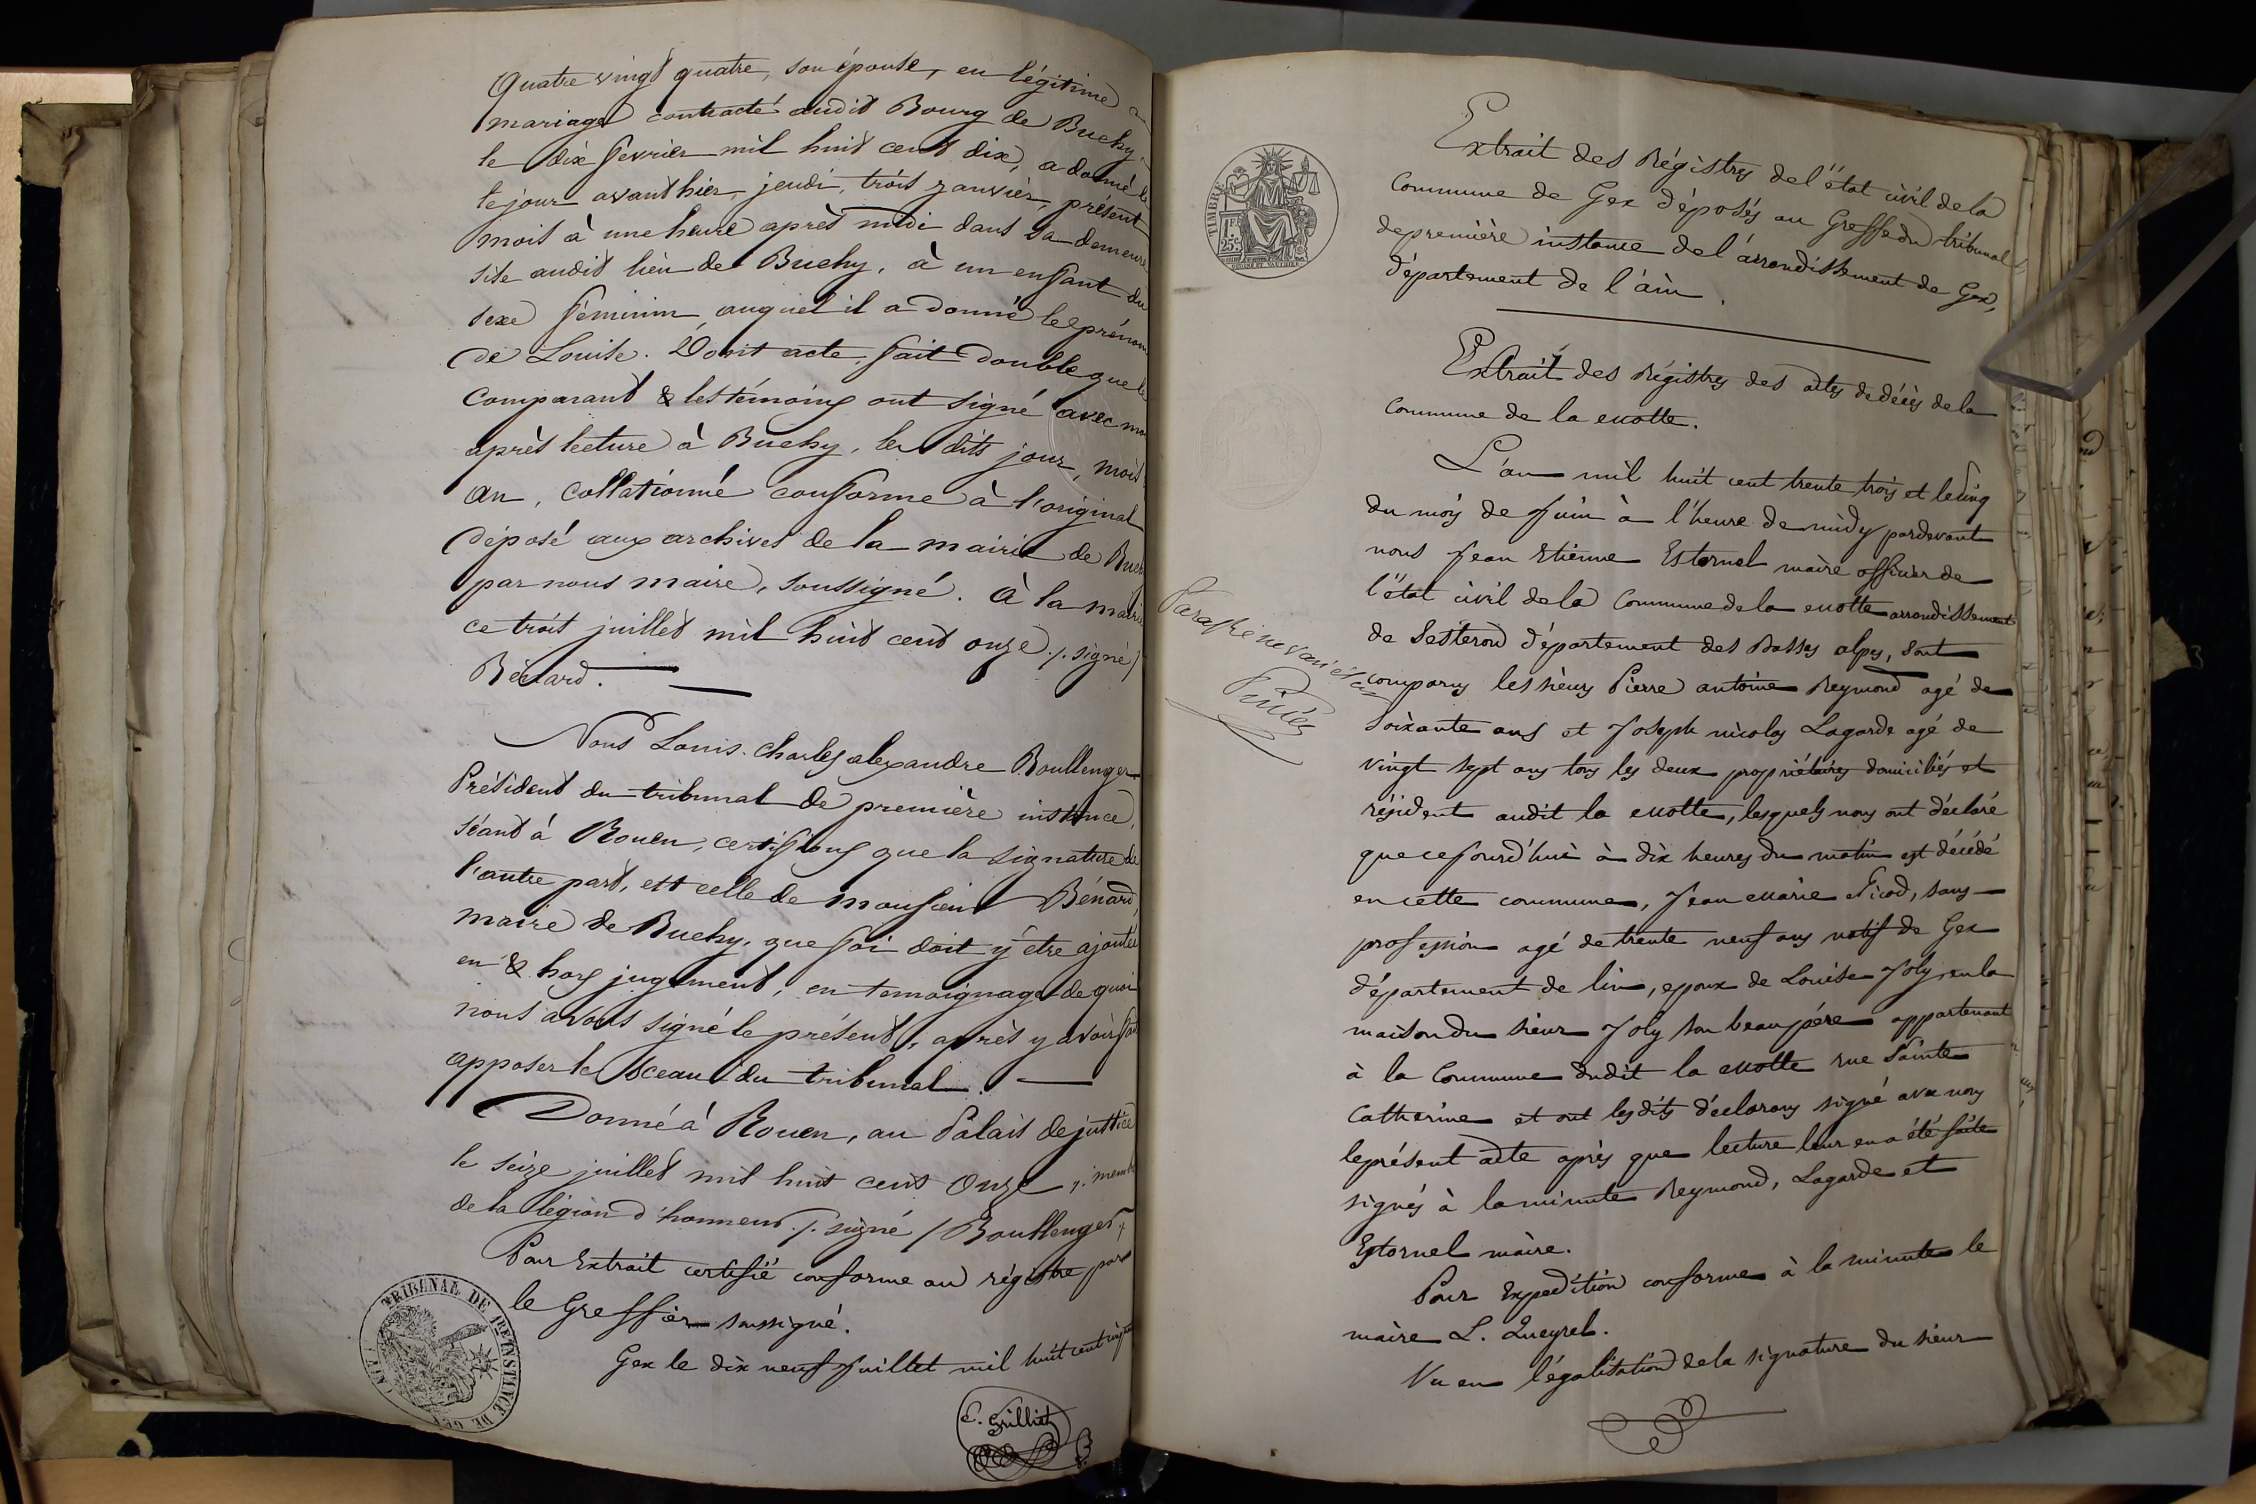 Quatre vingt quatre, son épouse, en légitime
mariage contracté audit Bourg de Buchy
le dix fevrier mil huit cent dix, a donné le
le jour avant hier, jeudi, trois janvier, présent
mois à une heure après midi dans sa demeure
sise audit lieu de Buchy, à un enfant du
sexe féminin auquel il a donné le prénom
de Louise. Dont acte, fait double que le
comparant & les témoins ont signé avec moi
après lecture à Buchy, les dits jour, mois
an, collationné conforme à l'original
déposé aux archives de la mairie de Buch
par nous maire, soussigné. à la mairie
ce trois juillet mil huit cent onze ./. signé /
Bénard.
Nous Louis. Charles alexandre Boullenger
Président du tribunal de première instance,
séant à Rouen, certifions que la signature de
l'autre part, est celle de monsieur Bénard,
maire de Buchy, que foi doit y être ajoutée
en & hors jugement, en temoignage de quoi
nous avons signé le présent, après y avoir fait
apposer le sceau du tribunal.
Donné à Rouen, au Palais de justice
le seize juillet mil huit cent onze ./. memb
de la légion d'honneur ./. signé / Boullenger
Pour Extrait certifié conforme au régistre par
le Greffier soussigné.
Gex le dix neuf Juillet mil huit cent
TRIBUNAL DE 1RE INSTANCE DE GEX
(AIN)
Parafé ne varietur
TIMBRE
1F.
25c.
Extrait des Régistres de l'état civil de la
Commune de Gex déposés au Greffe du tribunal
de première instance de l'arrondissement de Gex,
département de l'ain.
Extrait des Régistres des actes de décès de la
Commune de la Motte.
L'an mil huit cent trente trois et le cinq
du mois de Juin à l'heure de midy pardevant
nous Jean Etienne Estornel maire officier de
l'état civil de la Commune de la Motte arrondissement
de Sesteron département des Basses alpes, sont
comparus les sieurs Pierre antoine Reymond agé de
soixante ans et Joseph nicolas Lagarde agé de
vingt sept ans tous les deux propriétaires domiciliés et
résident audit la Motte, lesquels nous ont déclaré
que cejourd'hui à dix heures du matin est décédé
en cette commune, Jean Marie Nicod, sans
profession agé de trente neuf ans natif de Gex
département de lin, epoux de Louise Joly, en la
maison du sieur Joly son beau père appartenant
à la Commune dudit la Motte rue Sainte
Catherine et ont les dits déclarans signé avec nous
le présent acte après que lecture leur en a été faite
signés à la minute Reymond, Lagarde et
Estornel maire.
Pour Expedition conforme à la minute le
maire L. Queyrel.
Vu en légalisation de la signature du sieur